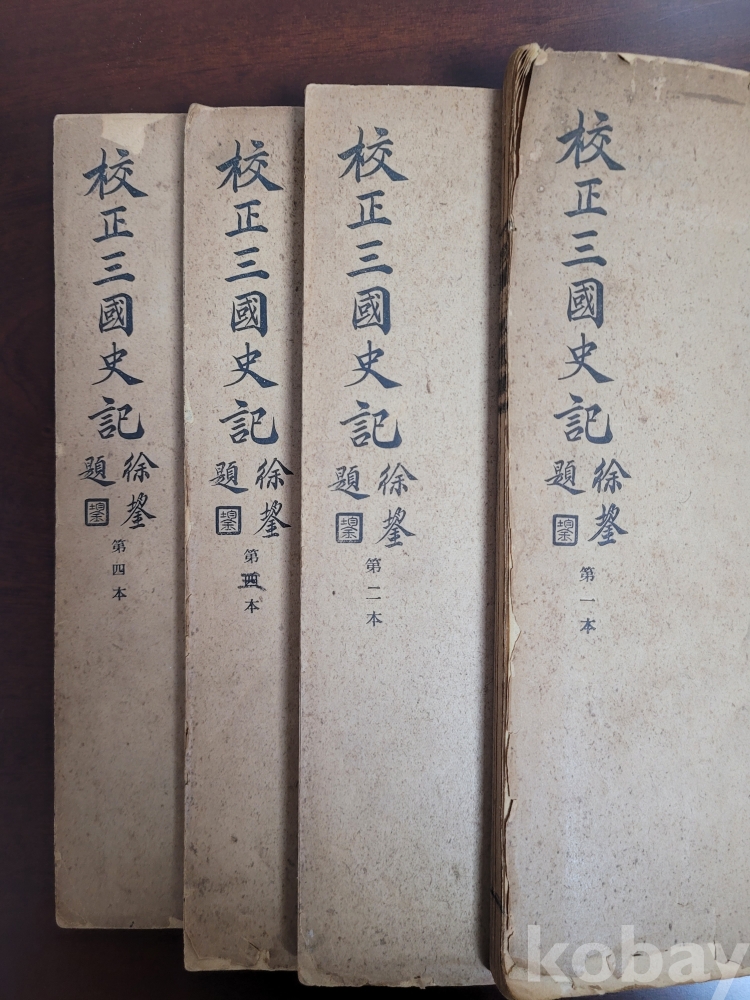 校正三國史記
徐鋆
題
第一本
校正三國史記
徐鋆
題
第二本
校正三國史記
徐鋆
題
第四本
校正三國史記
徐鋆
題
第四本
kobay